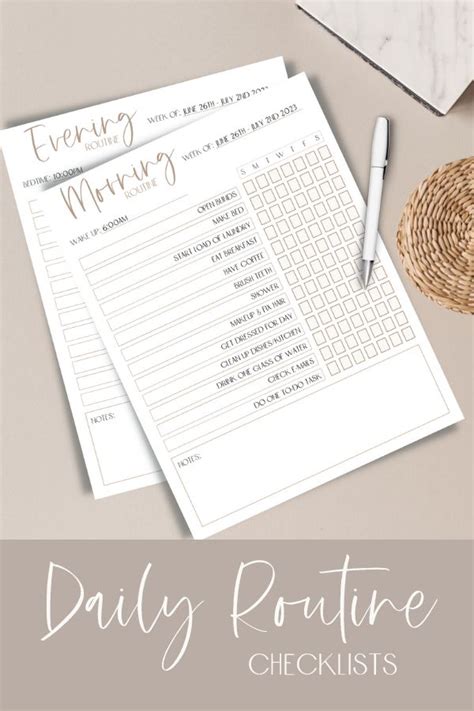 Evening
ROUTINE
WEEK OF: JUNE 26TH - JULY 2ND 2023
BEDTIME: 10:00PM
Morning
ROUTINE
WEEK OF: JUNE 26TH - JULY 2ND 2023
WAKE UP: 6:00AM
S M T W T F S
OPEN BLINDS
MAKE BED
START LOAD OF LAUNDRY
EAT BREAKFAST
HAVE COFFEE
BRUSH TEETH
SHOWER
MAKEUP & FIX HAIR
GET DRESSED FOR DAY
CLEAN UP DISHES/KITCHEN
DRINK ONE GLASS OF WATER
CHECK EMAILS
DO ONE TO-DO TASK
NOTES:
NOTES:
Daily Routine
CHECKLISTS